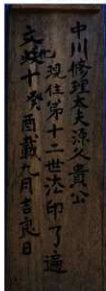 中川修理太夫源久貴公
現住第十二世法印了遍
文政十癸酉載九月吉祥日